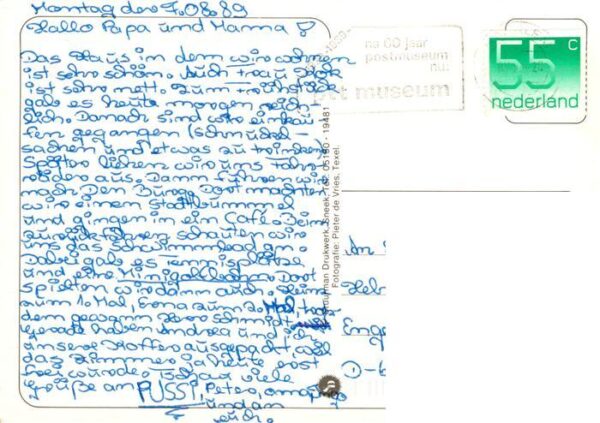 Montag den 7.08.89
Hallo Papa und Mama
Das Haus in dem wir wohnen
ist sehr schön. Auch Frau
ist sehr nett. Zum
gab es heute morgen
lich. Danach sind wir einkau
fen gegangen
sachen und etwas zu trinken
Später liehen wir uns Fahr-
räder aus. Dann fuhren wir
nach Den Burg. Dort machten
wir einen Stadtbummel
und gingen in ein Café. Beim
zurückfahren schauten wir
uns das Schwimmbad an.
Dabei gab es
und eine Minigolfbahn. Dort
spielten wir dann auch.
zum 1. Mal, zum 2. Mal
dem gewann Herr Schmidt.
Gerade haben Andrea und ich
unsere Koffer ausgepackt weil
das Zimmer ja heute erst
frei wurde. viele
Grüße an PUSSI, Peter,
und an
euch.
na 60 jaar
postmuseum
nu:
ptt museum
55 c
nederland
Drukwerk, Sneek. Tel. 05150 - 19481
Fotografie: Pieter de Vries, Texel.
An
Enge
D-6